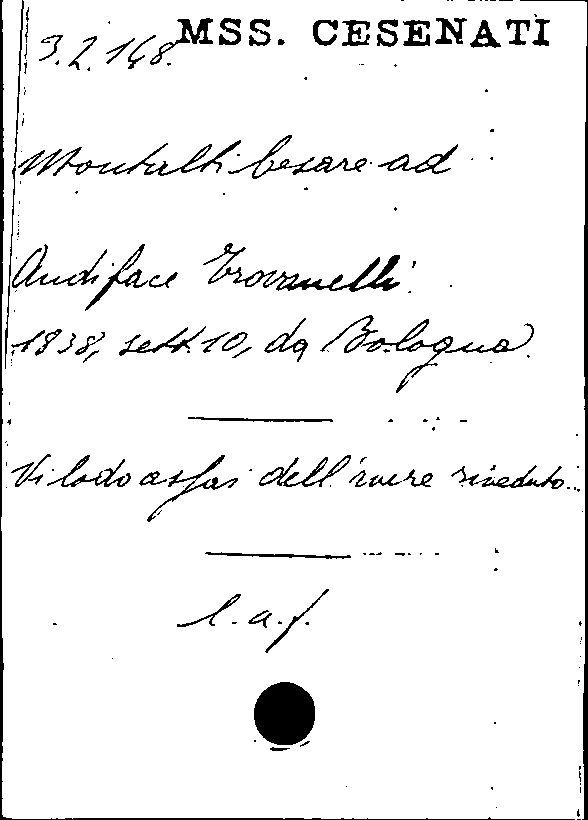 3.2.148. MSS. CESENATI
Montalti Cesare ad
Audiface Trovanelli
1838, sett. 10, da Bologna.
Vi lodo assai dell'avere riveduto...
l.a.f.